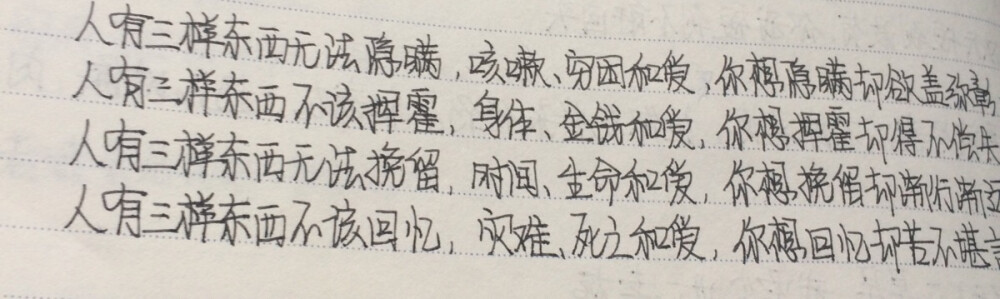 人有三样东西无法隐瞒，咳嗽、穷困和爱，你想隐瞒却欲盖弥彰
人有三样东西不该挥霍，身体、金钱和爱，你想挥霍却得不偿失
人有三样东西无法挽留，时间、生命和爱，你想挽留却渐行渐远
人有三样东西不该回忆，灾难、死亡和爱，你想回忆却苦不堪言